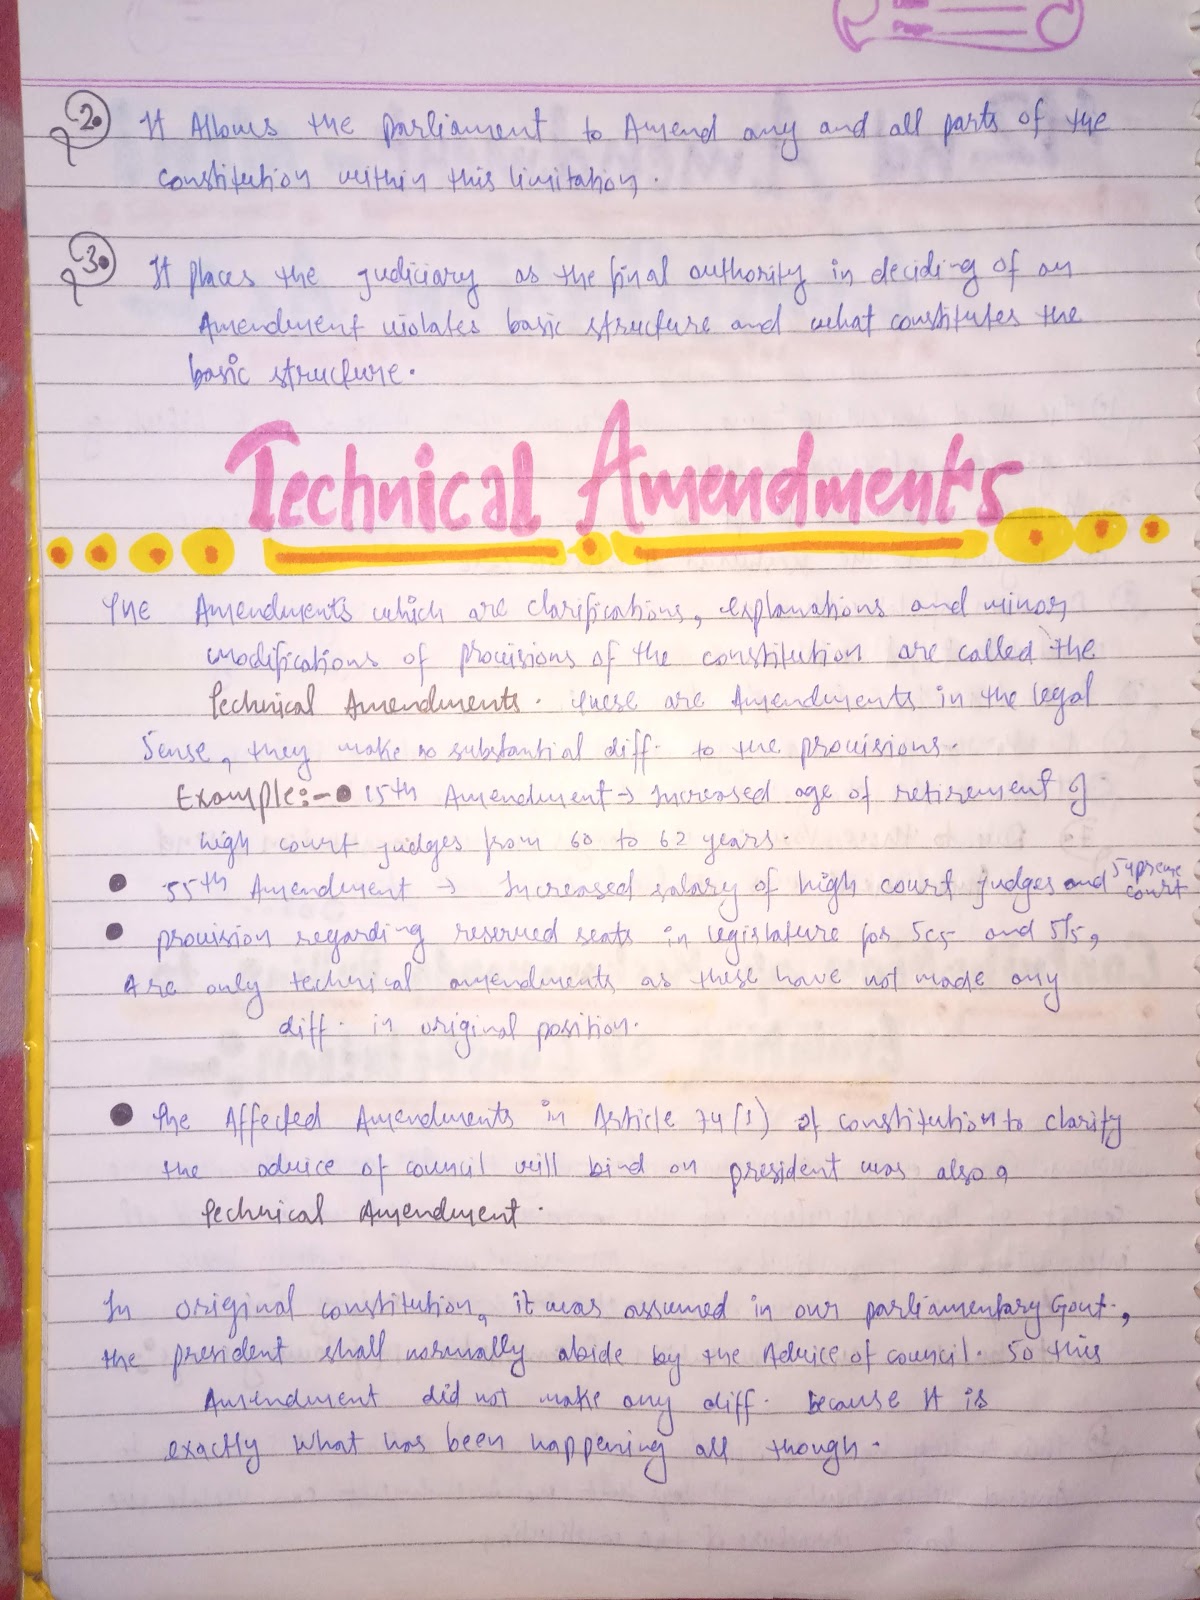 2. It Allows the parliament to Amend any and all parts of the
constitution within this limitation.
3. It places the judiciary as the final authority in deciding of an
Amendment violates basic structure and what constitutes the
basic structure.
Technical Amendments
The Amendments which are clarifications, explanations and minor
modifications of provisions of the constitution are called the
Technical Amendments. These are Amendments in the legal
Sense, they make no substantial diff. to the provisions.
Example:- • 15th Amendment → Increased age of retirement of
high court judges from 60 to 62 years.
• 55th Amendment → Increased salary of high court judges and Supreme court
• provision regarding reserved seats in legislature for SCs and STs,
Are only technical amendments as these have not made any
diff. in original position.
• The Affected Amendments in Article 74(1) of constitution to clarify
the advice of council will bind on president was also a
Technical Amendment.
In original constitution, it was assumed in our parliamentary Govt.,
the president shall normally abide by the Advice of council. So this
Amendment did not make any diff. Because it is
exactly what has been happening all though.